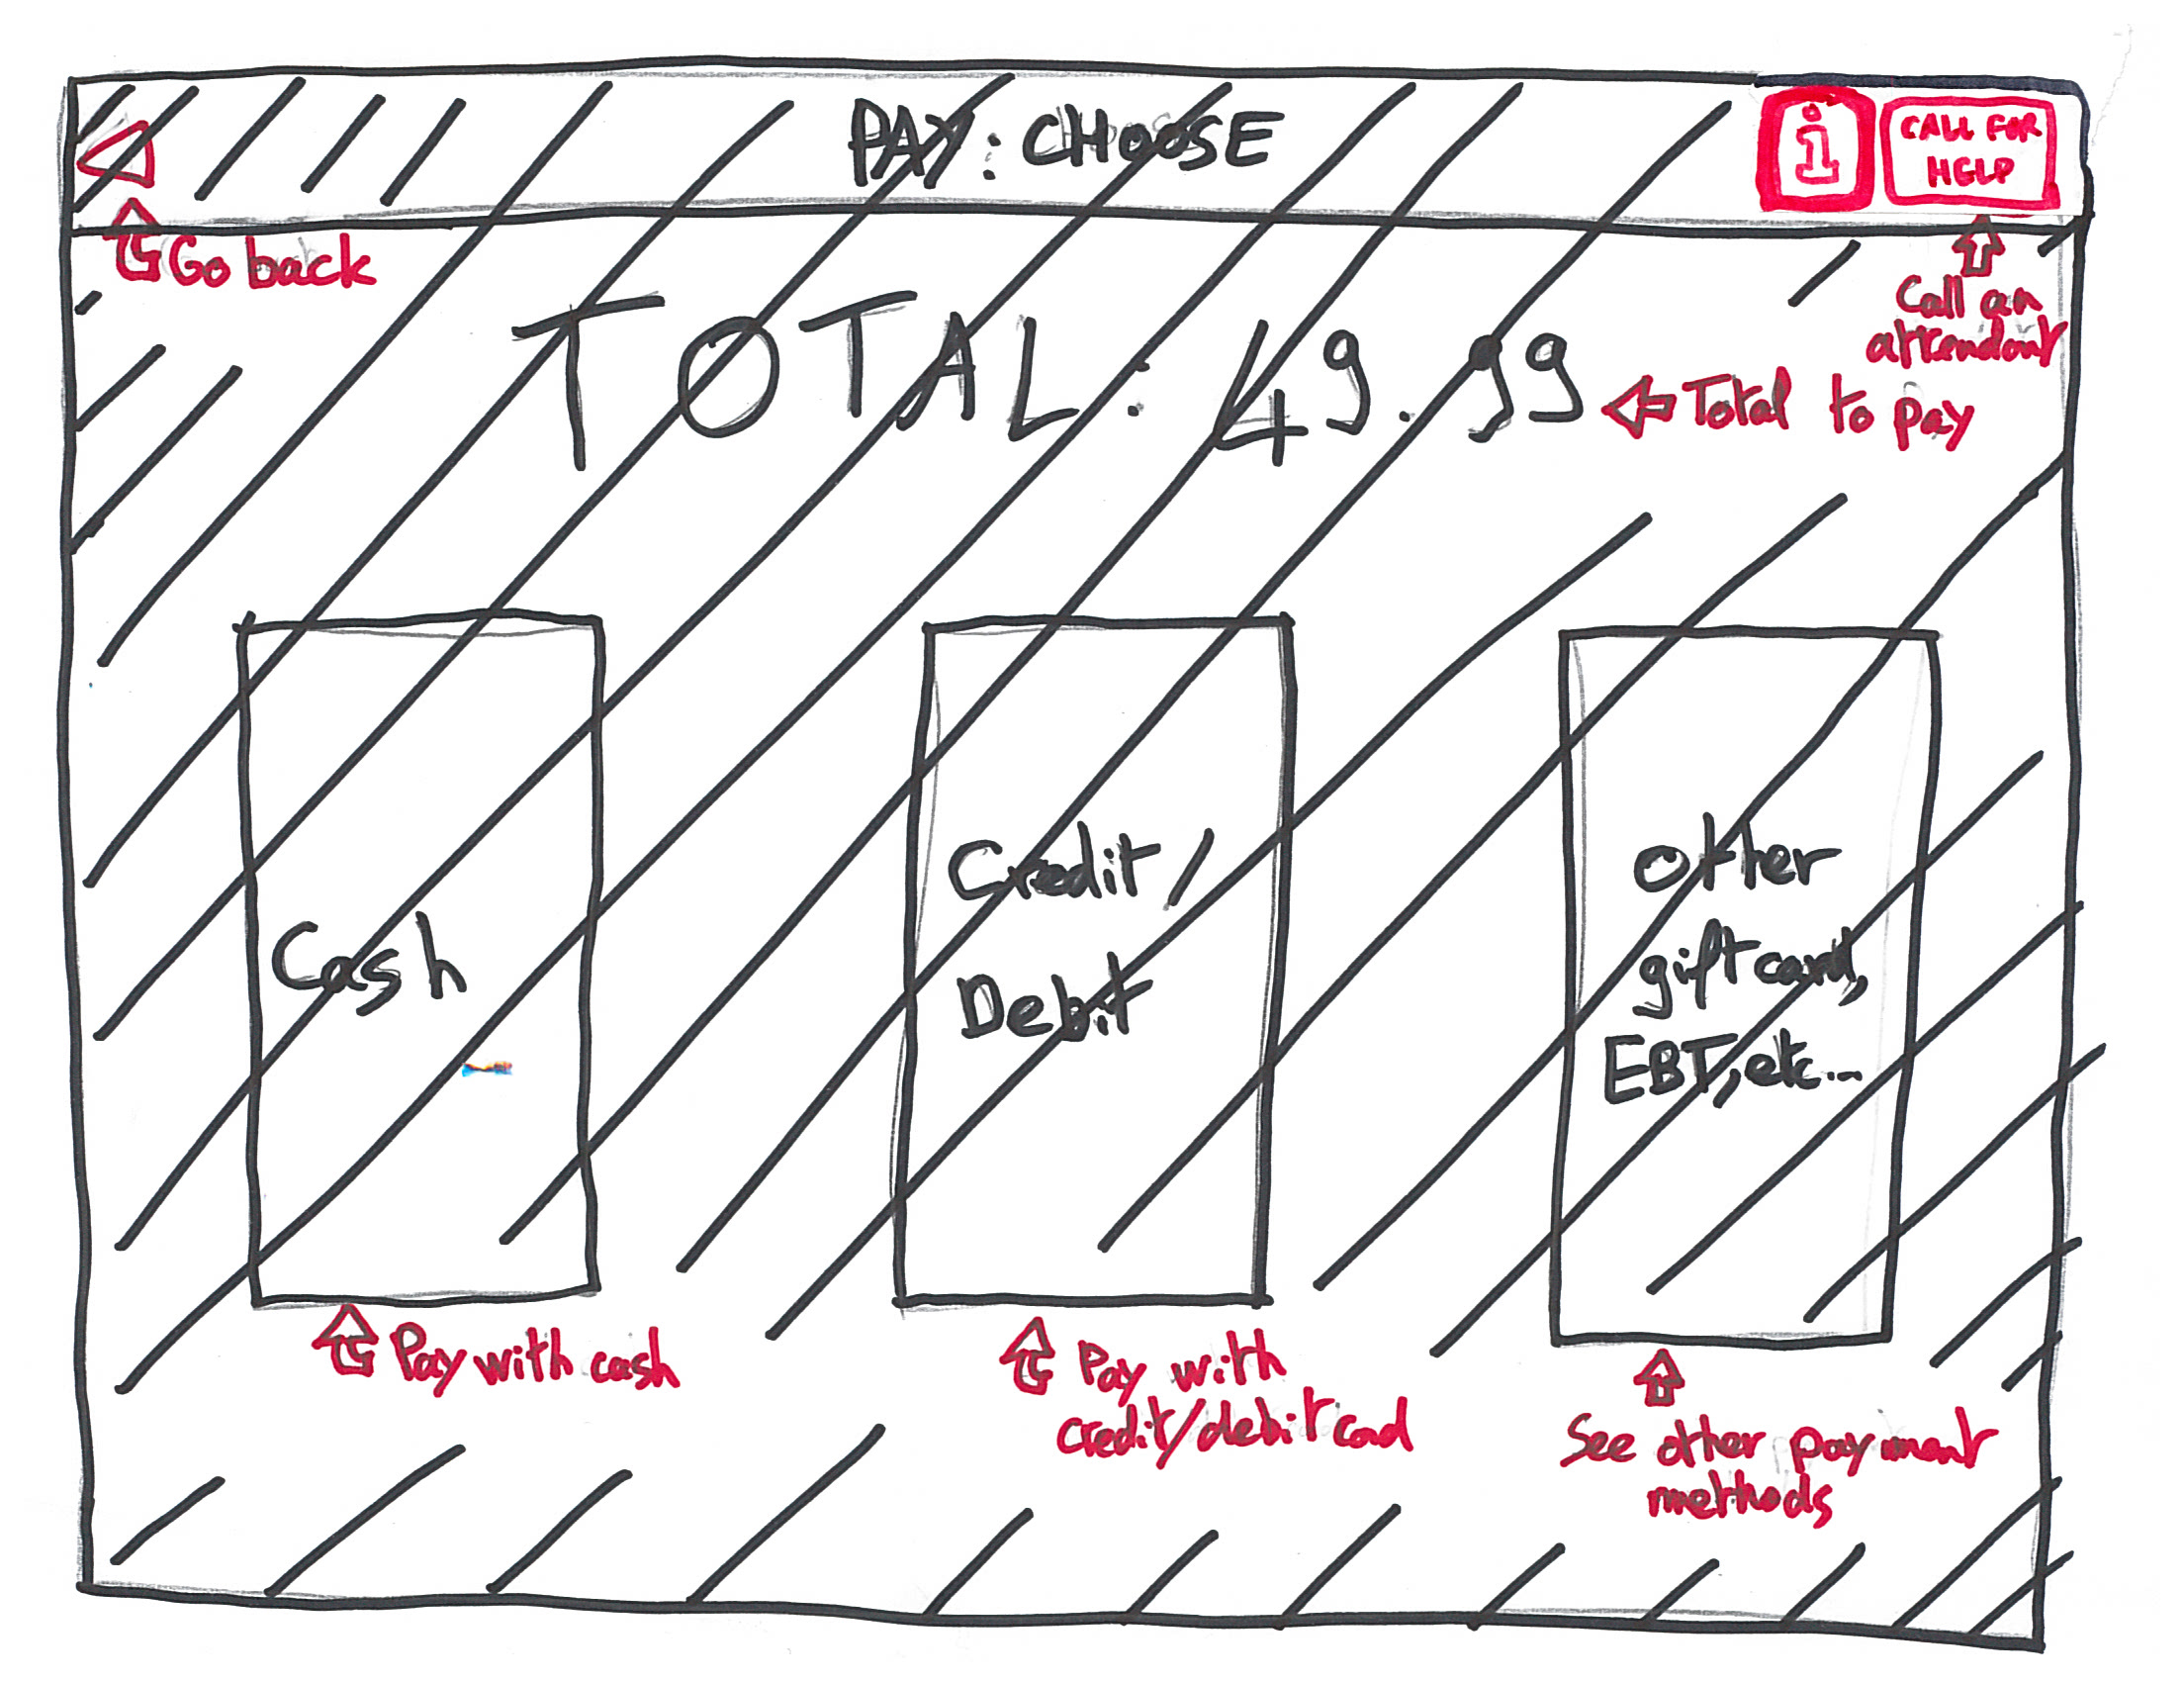 PAY: CHOOSE
i
CALL FOR
HELP
Go back
Call an
attendant
TOTAL: 49.99
Total to pay
Cash
Credit /
Debit
Other
gift card,
EBT, etc...
Pay with cash
Pay with
credit/debit card
See other payment
methods